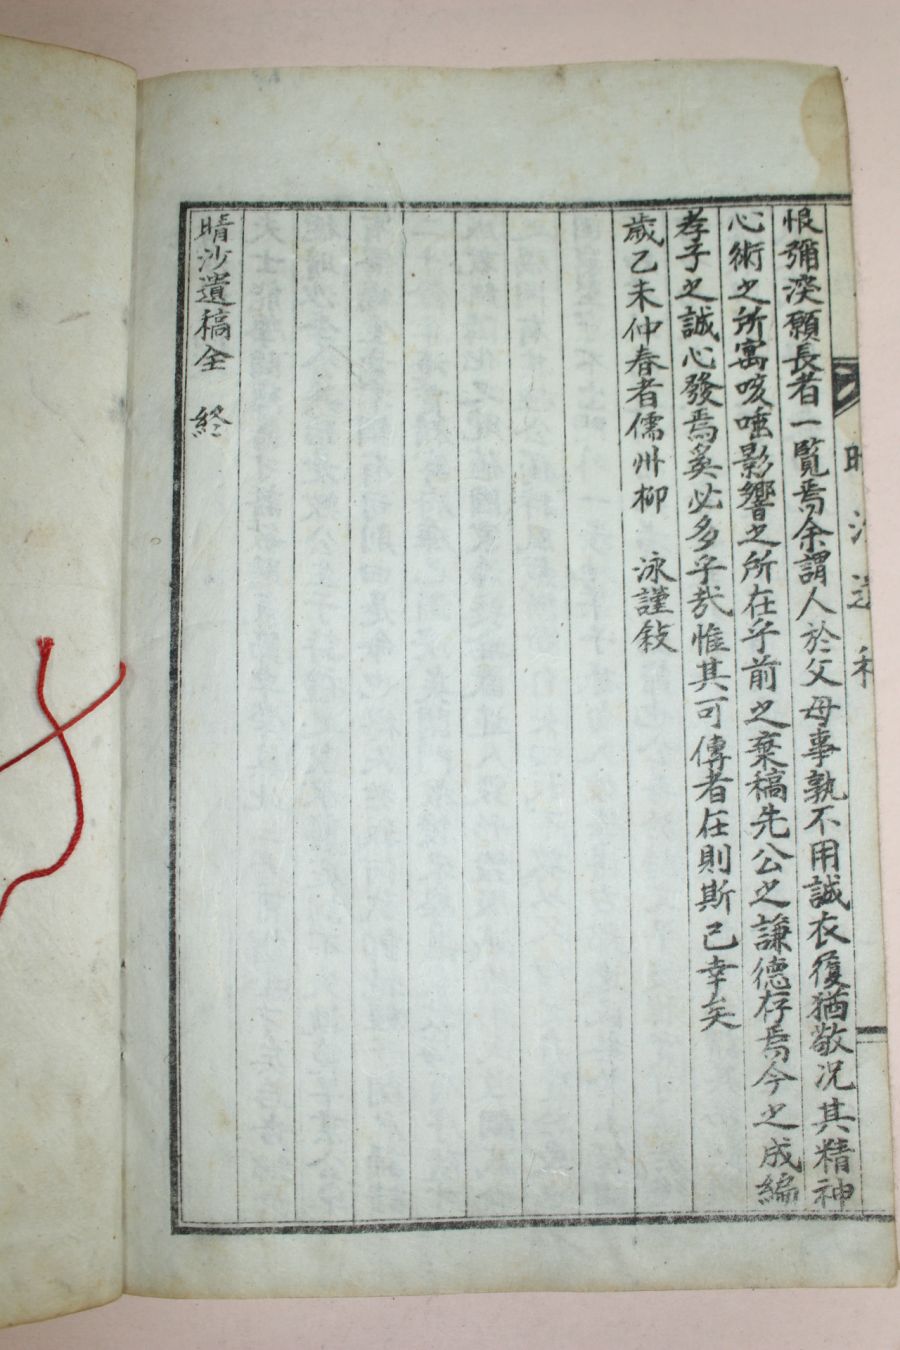 恨彌深願長者一覧焉余謂人於父母事孰不用誠衣履猶敬况其精神
心術之所寓咳唾影響之所在乎前之棄稿先公之謙德存焉今之成編
孝子之誠心發焉奚必多乎哉惟其可傳者在則斯已幸矣
歲乙未仲春者儒州柳　泳謹敍
晴沙遺稿全　終
晴沙遺稿